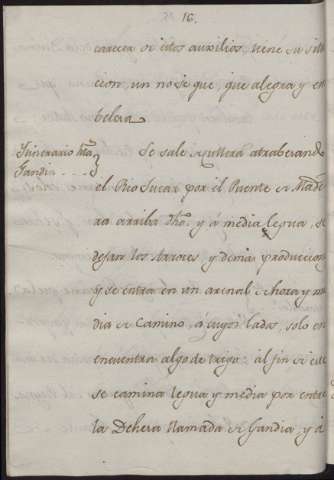 16.
carecer de estos auxilios, tiene su situa
cion, un no se que, que alegra y em
belesa.
Itinerario hta
Gandia - - -
Se sale de Cullera atrabesando
el Rio Jucar por el Puente de Made
ra arriba dho. y á media legua, se
dejan los Arrozes, y demas produccion
y se entra en un arenal de hora y me
dia de Camino, á cuyos lados, solo en
encuentra algo de trigo: al fin de este
se camina legua y media por entre
la Dehesa llamada de Gandia, y á